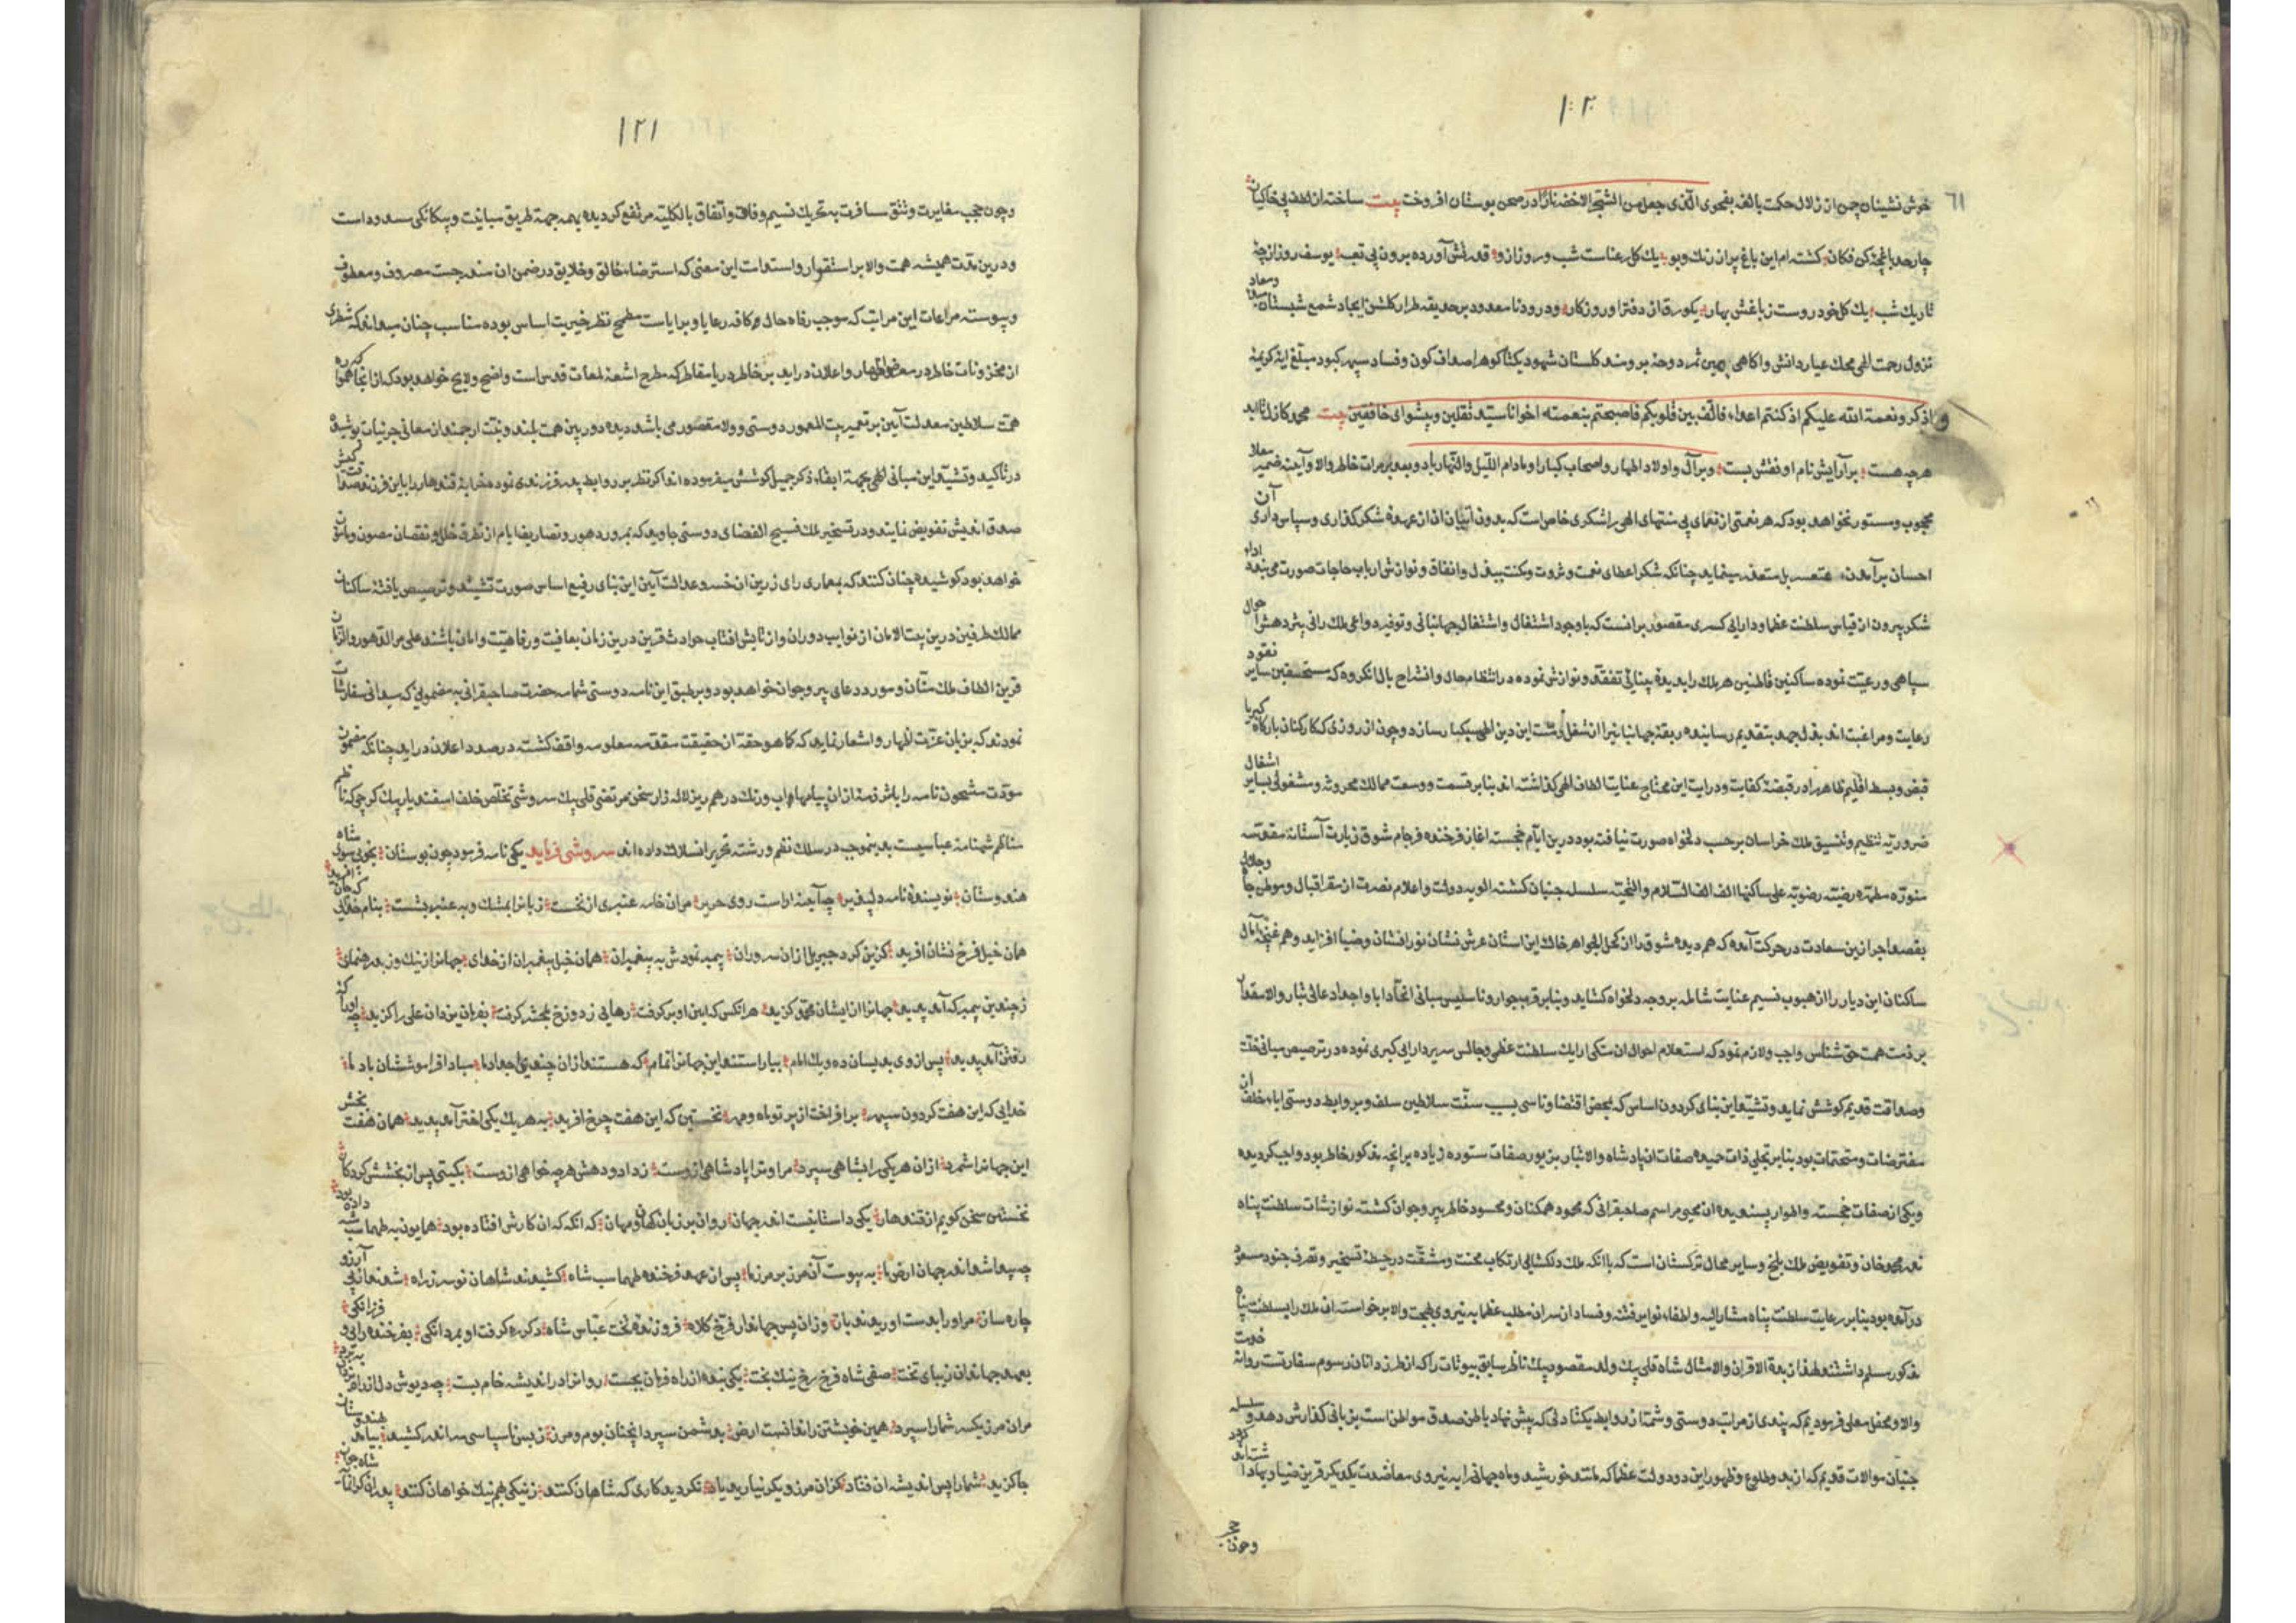 ١٢٠
٦١
خوش نشینان چمن از زلال حکمت بالغه بفحوی الّذی جعل من الشّجر الاخضر نارًا در صحن بوستان افروخت بیت ساخته از لطف پی خاکیان
چار حد باغچهٔ کن فکان گشته ام این باغ پر از رنک و بو یك کل رعناست شب و روز ازو یوسف روز از چه
تاریك شب یك کل خودروست ز باغش بهار یکورق از دفتر او روزکار و درود نامعدود بر حدیقه طراز کلشن ایجاد شمع شبستان معاش و معاد
نزول رحمت الهی محك عیار دانش و اکاهی ثمر دوحهٔ برومند کلستان شهود یکتا کوهر اصداف کون و فساد سپهر کبود مبلّغ ایهٔ کریمهٔ
و اذکروا نعمة الله علیکم اذ کنتم اعداء فالّف بین قلوبکم فاصبحتم بنعمته اخوانا سیّد ثقلین و پیشوای خافقین بیت محمّد کازل تا ابد
هر چه هست بر آرایش نام او نقش بست و بر آل و اولاد اطهار و اصحاب کبار او مادام اللّیل و النّهار باد و بعد بر مرات خاطر والا و آینه ضمیر معلا
محجوب و مستور نخواهد بود که هر نعمتی از نعمای بی منتهای الهی را شکری خاص است که بدون اتیان آن از عهدهٔ شکرکذاری و سپاس داری
احسان بر آمدن متعسر بل متعذر مینماید چنانکه شکر اعطای نعمت و ثروت و مکنت ببذل و انفاق و نوازش ارباب حاجات صورت می بندد اداء
شکر بیرون از قیاس سلطنت عظما و دارایی کبری مقصور بر انست که با وجود اشتغال جهانبانی و توفیر دواعی ملك رانی پژوهش احوال
سپاهی و رعیت نموده ساکنین قاطنین هر ملك را تفقد و نوازش نموده در انتظام حال و انشراح بال انکروه که مستحقین نقود سایر
رعایت و مراغبت اند بذل جهد بتقدیم رسانیده و چون از روزی که کارکنان بارکاه کبریا
قبض و بسط اقلیم ظاهر را در قبضهٔ کفایت و درایت این محتاج عنایت الطاف الهی کذاشته اند بنا بر قسمت و وسعت ممالك محروسه و مشغولی بسایر اشغال
ضروریّه تنظیم و تنسیق ملك خراسان بر حسب دلخواه صورت نیافته بود درین ایّام خجسته اغاز فرخنده فرجام شوق زیارت آستانهٔ مقدّسه
منوّره مطهّره رضیّه رضویّه علی ساکنها الف الف السّلام و التّحیّه سلسله جنبان کشته الویه دولت و اعلام نصرت از مقر اقبال و موطن جاه و جلال
بقصد احراز این سعادت در حرکت آمده که هم دیده شوق را از کحل الجواهر خاك این استان عرش نشان نور افشان و ضیا افزاید و هم غنچهٔ آمال
ساکنان این دیار را از هبوب نسیم عنایت شامله بر وجه دلخواه کشاید و بنا بر قرب جوار و تاسیس مبانی اتّحاد ابا و اجداد عالی تبار والا مقدار
بر ذمت همت حق شناس واجب و لازم نمود که استعلام احوال ان متکی ارایك سلطنت عظمی و جالس سریر دارایی کبری نموده در ترصیص مبانی خلّت
و صداقت قدیم کوشش نماید و تشیید این بنای کردون اساس که بمحض اقتضا و تاسی بسیب سنّت سلاطین سلف و بر روابط دوستی اباء خلف از
مفترضات و متحتمات بود بنا بر تجلی ذات حمیده صفات ان پادشاه والا تبار بزیور صفات ستوده زیاده بر انچه مذکور خاطر بود واجب کردیده
و یکی از صفات خجسته و اطوار پسندیده ان محیی مراسم صاحبقرانی که محمود همکنان و محسود خاطر پیر و جوان کشته نوازشات سلطنت پناه
نذر محمّد خان و تفویض ملك بلخ و سایر محال ترکستان است که با انکه ملك دلکشا بی ارتکاب محنت و مشقّت در حیطهٔ تسخیر و تصرف جنود مسعود
در آمده بود بنا بر رعایت سلطنت پناه مشارالیه و اطفاء نوایر فتنه و فساد از سر ان مطلب عظما به نیروی همت والا بر خواسته ان ملك را بسلطنت پناه
مذکور مسلم داشتند لهذا زبدة الاقران و الامثال شاه قلی بیك ولد مقصود بیك ناظر سابق بیوتات را که از طرز دانان رسوم سفارتست روانهٔ خدمت
والا و محفل معلی فرمودیم که بندی از مراتب دوستی و شمّهٔ از روابط یکتا دلی که پیش نهاد باطن صدق مواطن است بزبانی کذارش دهد و سلسله
جنبان موالات قدیم که از بدو طلوع و ظهور این دو دولت عظما که مانند خورشید و ماه جهانی را به نیروی معاضدت یکدیکر قرین ضیا و بها دارند کردد
و چون حجب
١٢١
و چون حجب مغایرت و تتق مسافرت به تحریك نسیم وفاق و اتّفاق بالکلیّه مرتفع کردیده بهمه جهة طریق مباینت و بیکانکی مسدود است
و درین مدّت همیشه همت والا بر استقرار و استدامت این معنی که استرضاء خالق و خلایق در ضمن ان مندرجست مصروف و معطوف
و پیوسته مراعات این مراتب که موجب رفاه حال کافه رعایا و برایاست مطمح نظر خیریت اساس بوده مناسب چنان میداند که شطری
از مخزونات خاطر در معرض اظهار و اعلان در اید بر خاطر دریا مقاطر که مطرح اشعهٔ لمعات قدس است واضح و لایح خواهد بود که از انجا که همواره
همّت سلاطین معدلت آیین بر تعمیر بیت المعمور دوستی و ولا مقصور می باشد دیده دوربین همت بلند و نیّت ارجمند از معانی جزئیات پوشیده
در تاکید و تشیید این مبانی الهی بجهة ابقاء ذکر جمیل کوشش میفرموده اند اکر نظر بر روابط پدر فرزندی نموده قندهار را باین فرزند
صداقت اندیش تفویض نمایند و در تسخیر ملك فسیح الفضای دوستی جاوید که بمرور دهور و تصاریف ایام از تطرق خلل و نقصان مصون و مامون
خواهد بود کوشیده چنان کنند که بمعماری رای زرین ان خسرو عدالت آیین این بنای رفیع اساس صورت تشیید و ترصیص یافته ساکنان
ممالك طرفین درین بیت الامان از نوایب دوران و از تابش افتاب حوادث قرین درین زمان بعافیت و رفاهیّت و امان باشند علی مرّ الدّهور و الزّمان
قرین الطاف ملك منّان و مورد دعای پیر و جوان خواهد بود و بر طبق این نامه دوستی شمامه حضرت صاحبقرانی به مضمونی که معانی سفارشات
نمودند که بزبان عزّت اظهار و اشعار نماید که کما هو حقه از حقیقت مقدمه معلومه واقف کشته در صدد اعلان در اید چنانکه مضمون
مودّت مشحون نامه را باشرذمهٔ از ان پیامها اب و رنك درهم ریز لاله زار سخن مرتضی قلی بیك سروشی تخلّص خلف اسفندیار بیك کرجی که ناظم
مناظم شهنامهٔ عباسیست بدینموجب در سلك نظم و رشتهٔ تحریر انسلاك داده اند سروشی فرماید یکی نامه فرمود چون بوستان بخوبی سوی شاه
هندوستان نویسندهٔ نامه دلپذیر چو آینه اراست روی حریر مر ان خامه عنبری از نخست زبانرا بمشك و به عنبر بشست بنام خدایی که جان آفرید
همان خیل فرخ نشان افرید کزین کرد جبریل از ان سروران پیمبر نمودش به پیغمبران همان خیل پیغمبران از خدای جهانرا از نیك و ز بد رهنمای
ز چندین پیمبر که آمد پدید جهانرا از ایشان محمّد کزید هر انکس که ایین او بر کرفت رهایی ز دوزخ بمحشر کرفت بفرمان یزدان علی را کزید چه او را که
رفتن آمد پدید پس از وی بدیسان ده و یك امام بیاراستند این جهانرا تمام که هستند از ان چندی اجداد ما مبادا فراموششان یاد ما
خدایی که این هفت کردون سپهر بر افراخت از پرتو ماه و مهر نخستین که این هفت چرخ افرید به هر یك یکی اختر آمد پدید همان هفت بخش
این جهانرا شمرد از ان هر یکی را بشاهی سپرد مرا و ترا پادشاهی ازوست ز داد و دهش هر چه خواهی ازوست بکیتی پس از بخشش کردکار
نخستین سخن کویم از قندهار یکی داستانیست اندر جهان روان بر زبان کهان و مهان که انکه که ان کارش افتاده بود همایون به طهماسب شه داده بود
چو پیدا شد اندر جهان ارض ما به پیوست آن مرز بر مرز ما پس از عهد فرخنده طهماسب شاه کشیدند شاهان نو سر ز راه شدند از پی آرزو
چاره ساز مر او را بدست اوریدند باز و زان پس جهاندار فرّخ کلاه فروزندهٔ تخت عبّاس شاه دکر ره کرفت او بمردانکی بفرخنده رایی و فرزانکی
بعهد جهاندار زیبای تخت صفی شاه فرّخ رخ نیك بخت یکی بنده از راه فرمان بجست روانرا در اندیشه خام بست چو دیوش دل از راه یزدان ببرد
مر ان مرز یکسر شما را سپرد همین خویشتن را ندانست ارض بدشمن سپرد انچنان بوم و مرز ز بس ناسپاسی سر اندر کشید بیامد بهندوستان
جا کزید شما را پس اندیشه ان فتاد کز ان مرز دیکر نیارید یاد نکردید کاری که شاهان کنند ز نیکی هم نیك خواهان کنند شاه جهان